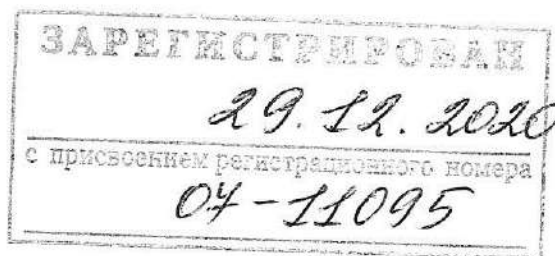 ЗАРЕГИСТРИРОВАН
29.12.2020
с присвоением регистрационного номера
07-11095